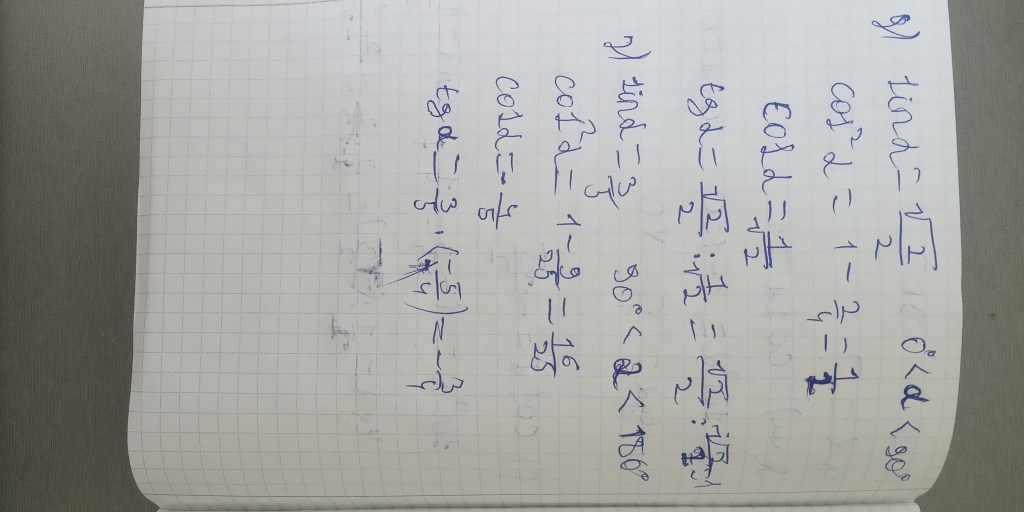 в) sin α = √2/2 0° < α < 90°
cos² α = 1 - 2/4 = 1/2
cos α = 1/√2
tg α = √2/2 : 1/√2 = √2/2 · √2/1
г) sin α = 3/5 90° < α < 180°
cos² α = 1 - 9/25 = 16/25
cos α = - 4/5
tg α = 3/5 · (-5/4) = - 3/4